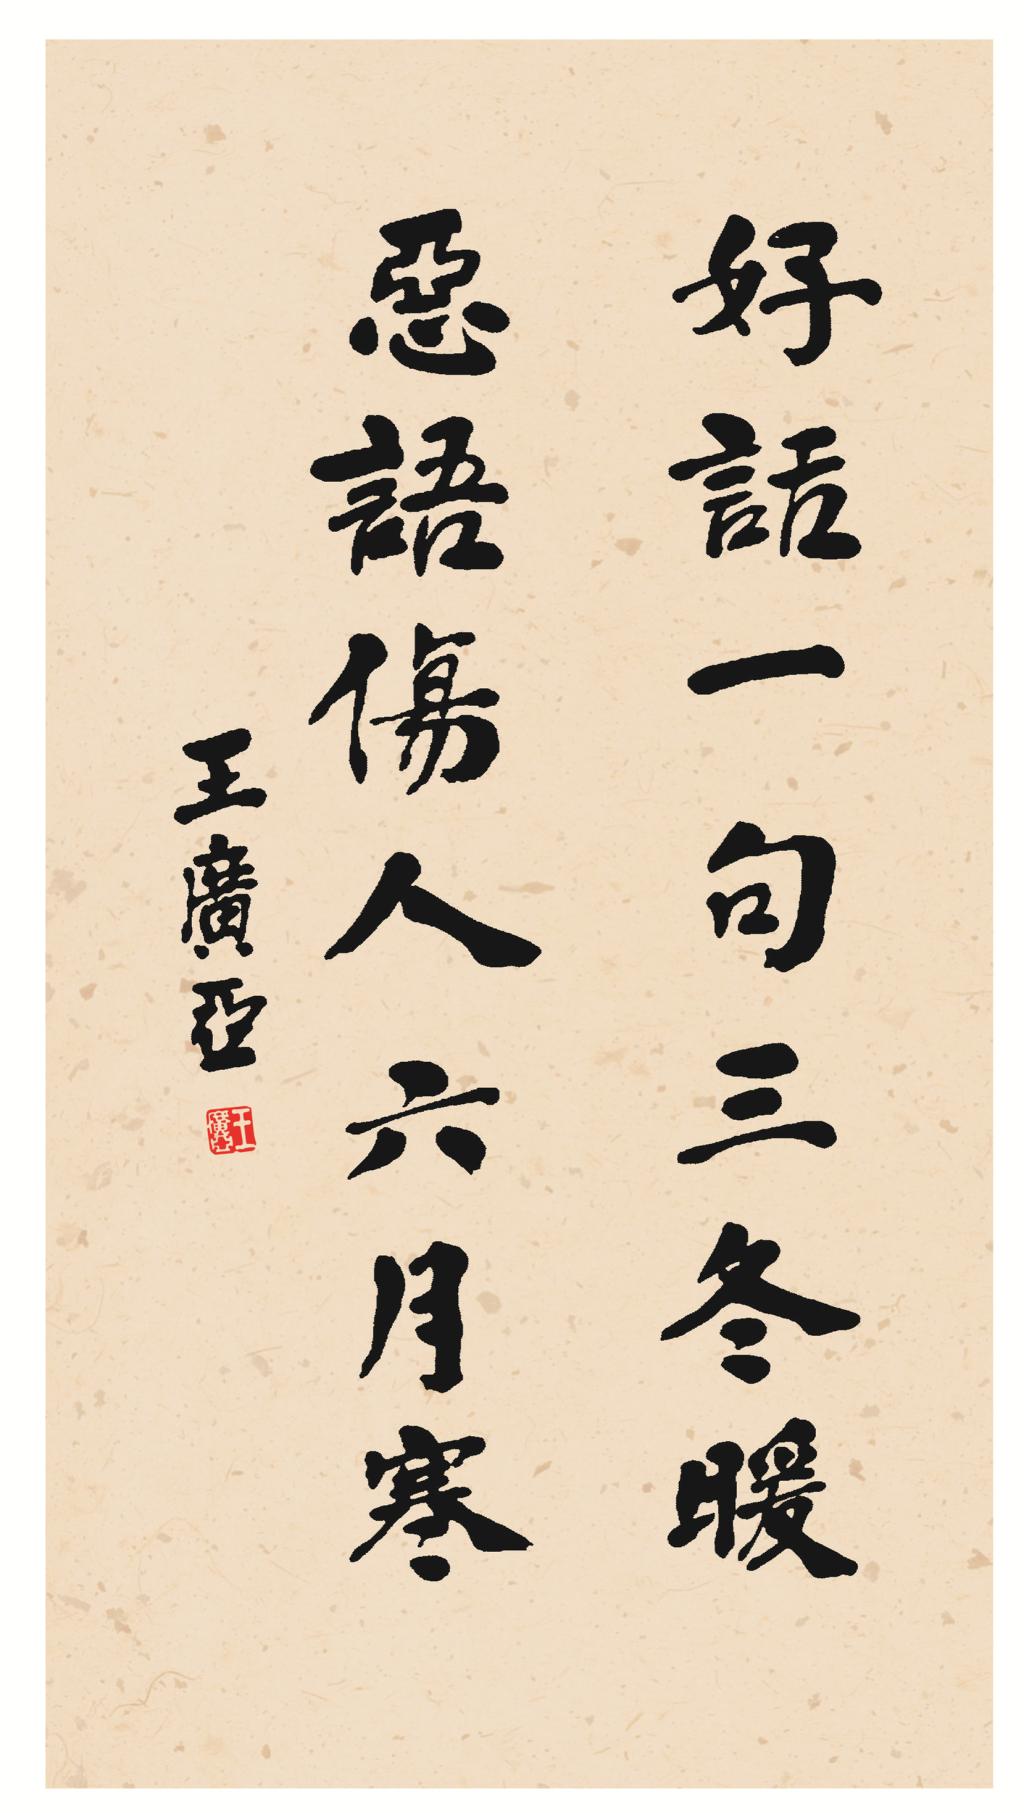 好話一句三冬暖
惡語傷人六月寒
王廣亞
王廣亞